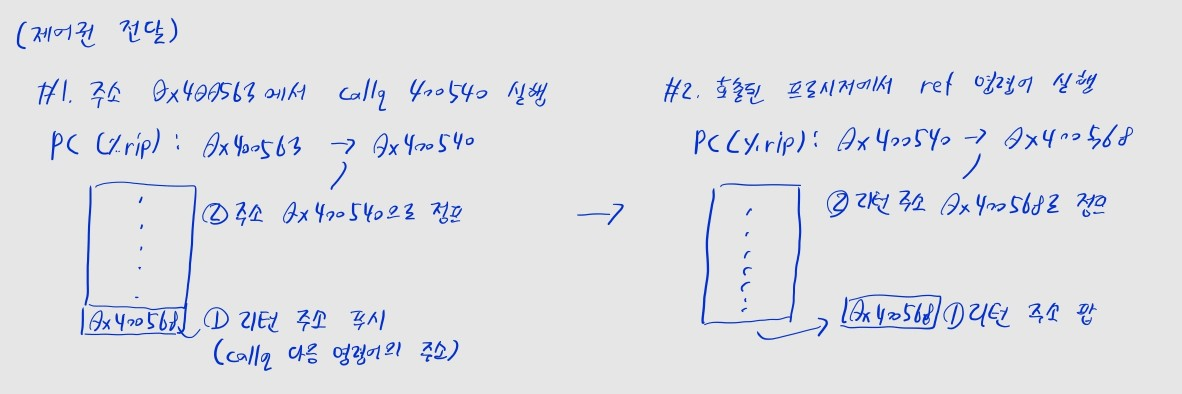 (제어권 전달)
#1. 주소 0x400563에서 callq 400540 실행
PC (%rip) : 0x400563 → 0x400540
② 주소 0x400540으로 점프
0x400568
① 리턴 주소 푸시
(callq 다음 명령어의 주소)
→
#2. 호출된 프로시저에서 ref 명령어 실행
PC(%rip) : 0x400540 → 0x400568
② 리턴 주소 0x400568로 점프
0x400568 ① 리턴 주소 팝